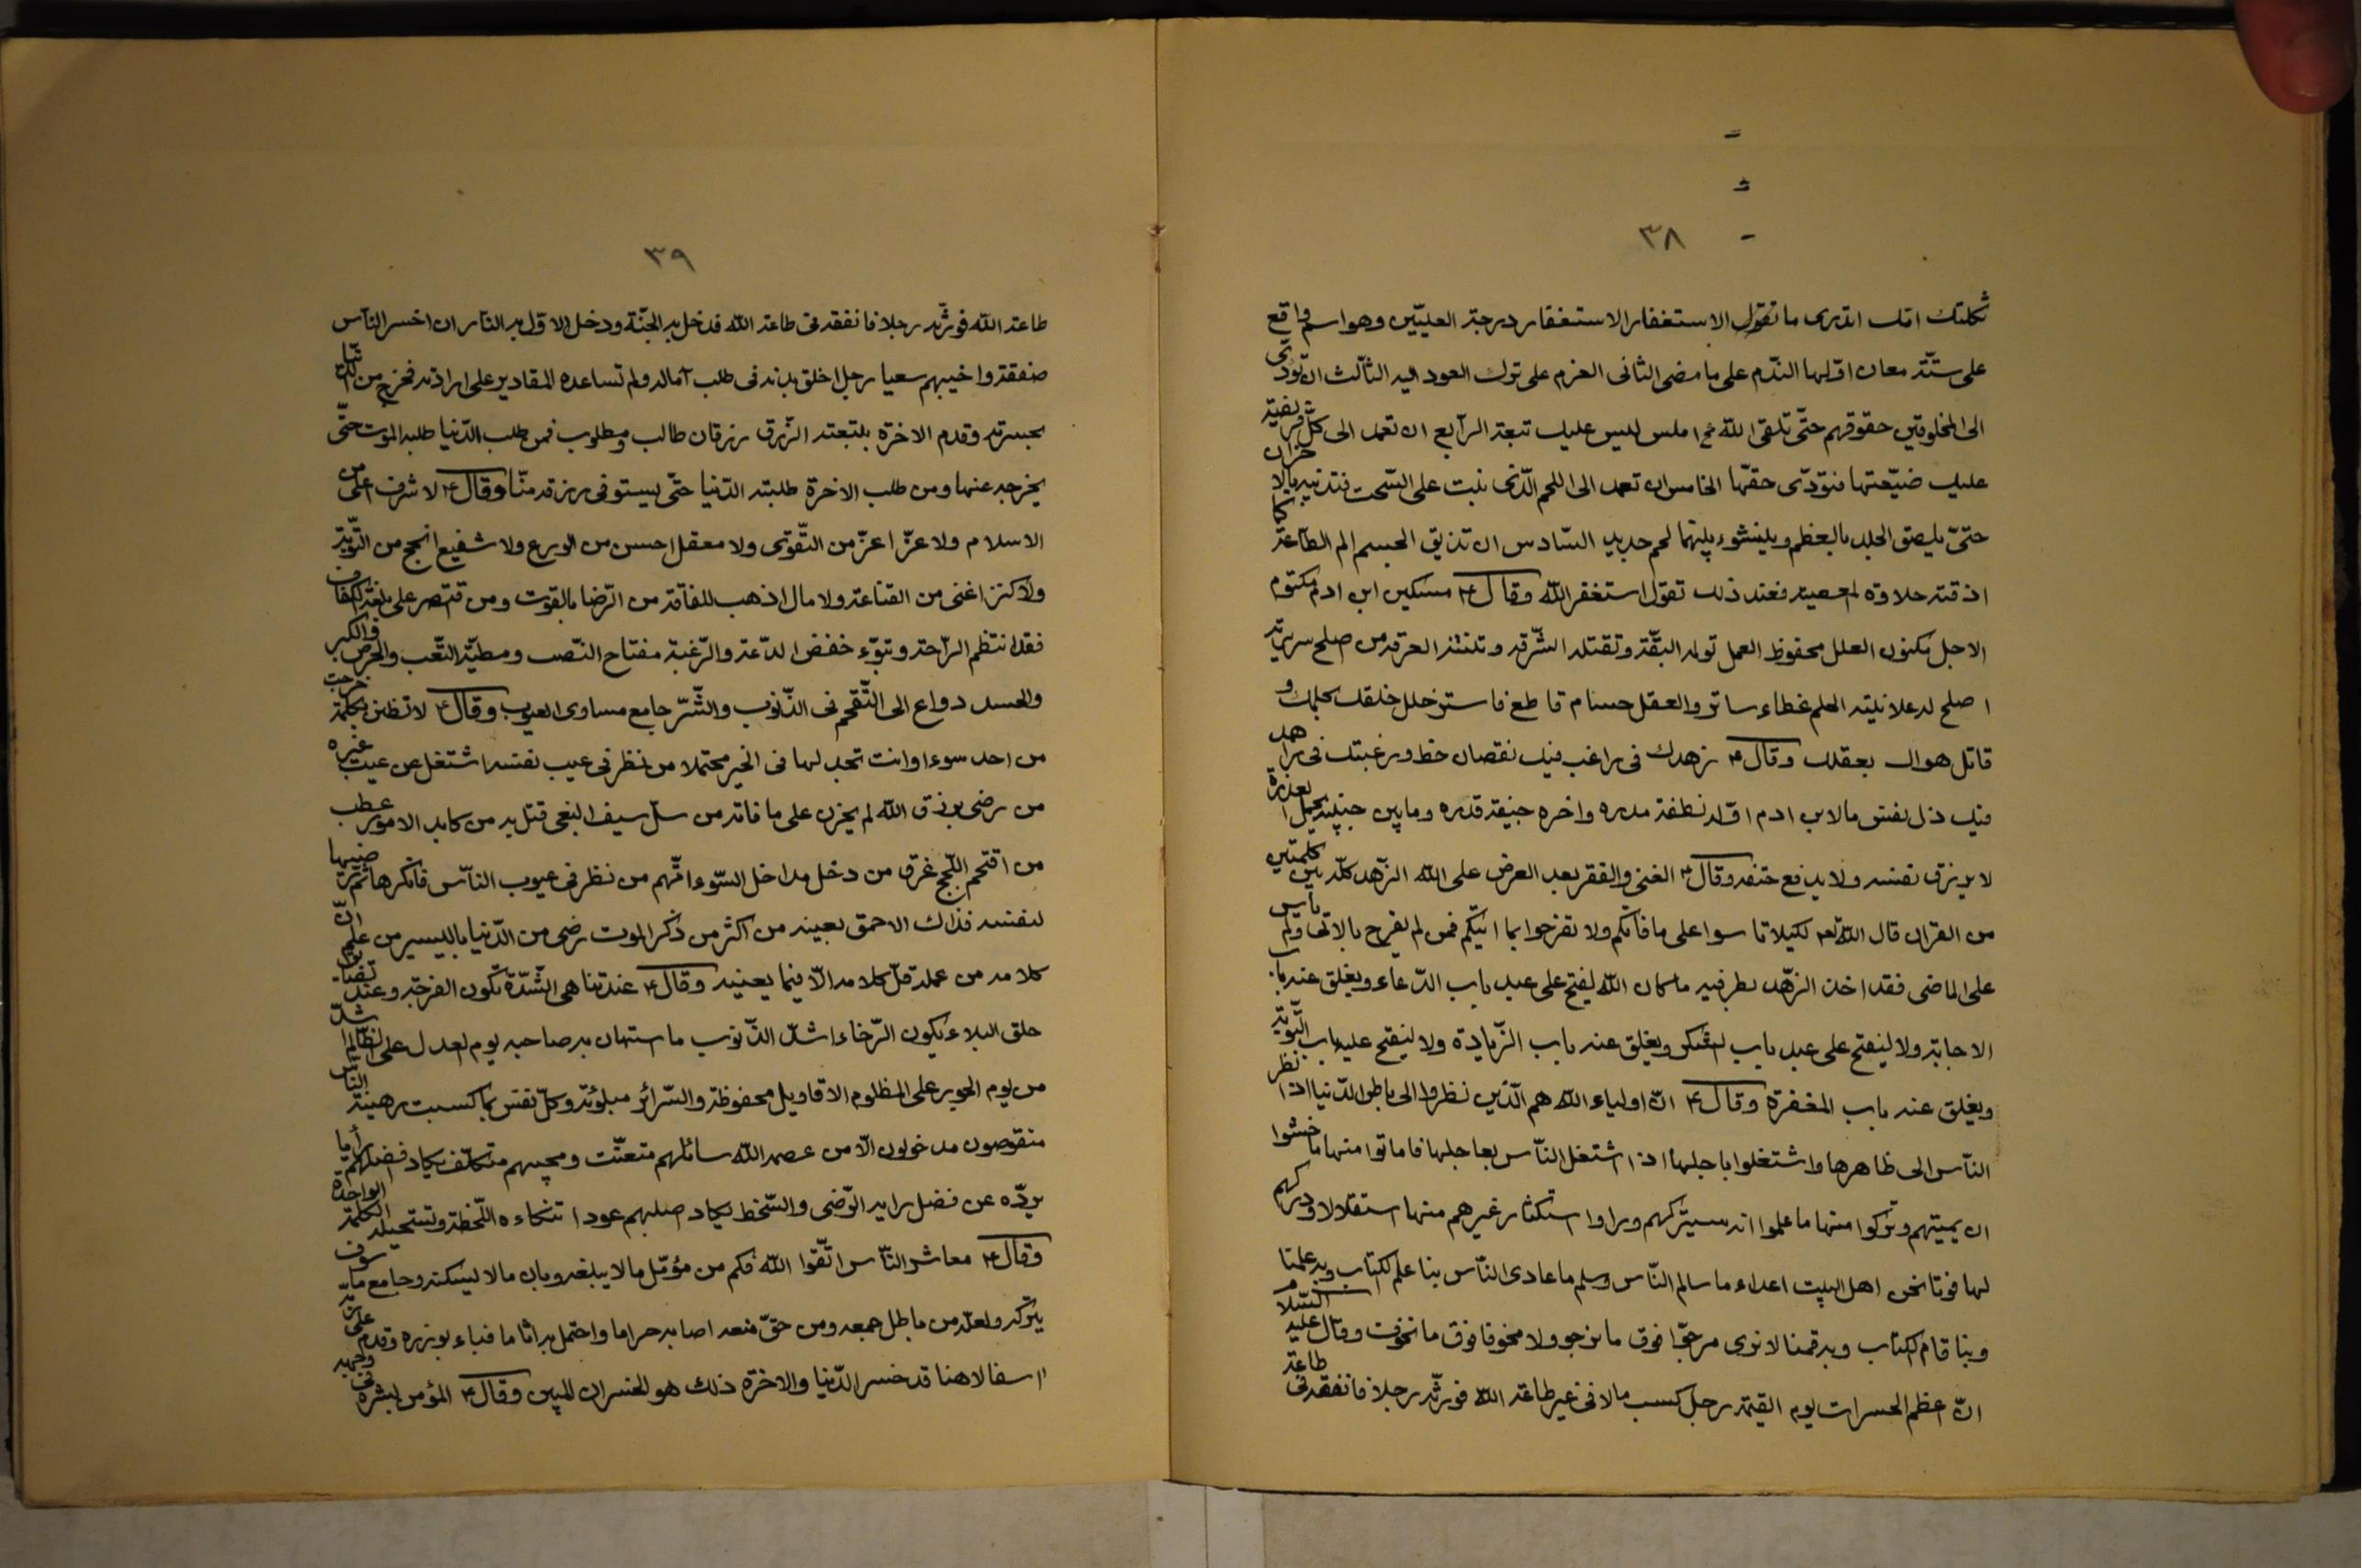 ٣٨
ثكلتك امك اتدرى ما تقول الاستغفار الاستغفار درجة العليّين وهو اسم واقع
على ستّة معان اوّلها النّدم على ما مضى الثانى العزم على ترك العود اليه الثّالث ان تؤدّى
الى المخلوقين حقوقهم حتّى تلقى اللّه املس ليس عليك تبعة الرّابع ان تعمد الى كلّ فريضة
عليك ضيّعتها فتؤدّى حقّها الخامس ان تعمد الى اللحم الّذى نبت على السّحت فتذيبه بالاحزان
حتّى يلصق الجلد بالعظم وينشوء بينهما لحم جديد السّادس ان تذيق الجسم الم الطّاعة كما
اذقته حلاوة المعصية فعند ذلك تقول استغفر اللّه وقال ع مسكين ابن ادم مكتوم
الاجل مكنون العلل محفوظ العمل تولمه البقّة وتقتله الشّرقة وتنتنه العرقة من صلح سريرته
اصلح له علانيته الحلم غطاء ساتر والعقل حسام قاطع فاستر خلل خلقك بحلمك و
قاتل هواك بعقلك وقال ع زهدك فى راغب فيك نقصان حظ ورغبتك فى زاهد
فيك ذل نفس ما لابن ادم اوّله نطفة مذره واخره جيفة قذره وما بين جنبيه يحمل العذرة
لا يرزق نفسه ولا يدفع حتفه وقال ع الغنى والفقر بعد العرض على اللّه الزّهد كلّه بين كلمتين
من القران قال اللّه تعه لكيلا تاسوا على ما فاتكم ولا تفرحوا بما اتيكم فمن لم يفرح بالاتى ولم ياس
على الماضى فقد اخذ الزّهد بطرفيه ما كان اللّه ليفتح على عبد باب الدّعاء ويغلق عنه باب
الاجابة ولا ليفتح على عبد باب الشكر ويغلق عنه باب الزّيادة ولا ليفتح عليه باب التّوبة
ويغلق عنه باب المغفرة وقال ع انّ اولياء اللّه هم الّذين نظروا الى باطن الدّنيا اذا نظر
النّاس الى ظاهرها واشتغلوا باجلها اذا اشتغل النّاس بعاجلها فاماتوا منها ما خشوا
ان يميتهم وتركوا منها ما علموا انه سيتركهم وراوا استكثار غيرهم منها استقلالا ودركهم
لها فوتا نحن اهل البيت اعداء ما سالم النّاس وسلم ما عادى النّاس بنا علم الكتاب وبه علمنا
وبنا قام الكتاب وبه قمنا لا نرى مرجوّا فوق ما نرجو ولا مخوفا فوق ما نخوف وقال عليه السّلام
انّ اعظم الحسرات يوم القيمة رجل كسب مالا فى غير طاعة اللّه فورثه رجلا فانفقه فى طاعة
٣٩
طاعة اللّه فورثه رجلا فانفقه فى طاعة اللّه فدخل به الجنّة ودخل الاوّل به النّار ان اخسر النّاس
صفقة واخيبهم سعيا رجل اخلق بدنه فى طلب آماله ولم تساعده المقادير على ارادته فخرج من الدّنيا
بحسرته وقدم الاخرة بتبعته الرّزق رزقان طالب ومطلوب فمن طلب الدّنيا طلبه الموت حتّى
يخرجه عنها ومن طلب الاخرة طلبته الدّنيا حتّى يستوفى رزقه منّا وقال ع لا شرف اعلى من
الاسلام ولا عزّ اعزّ من التّقوى ولا معقل احسن من الورع ولا شفيع انجح من التّوبة
ولا كنز اغنى من القناعة ولا مال اذهب للفاقة من الرّضا بالقوت ومن قتصر على بلغة الكفاف
فقد انتظم الرّاحة وتبوّء خفض الدّعة والرّغبة مفتاح النّصب ومطيّة التّعب والحرص والكبر
والحسد دواع الى التّقحم فى الذّنوب والشّرّ جامع مساوى العيوب وقال ع لا تظنن بكلمة خرجت
من احد سوءا وانت تجد لها فى الخير محتملا من نظر فى عيب نفسه اشتغل عن عيب غيره
من رضى برزق اللّه لم يحزن على ما فاته من سلّ سيف البغى قتل به من كابد الامور عطب
من اقتحم اللّجج غرق من دخل مداخل السّوء اتّهم من نظر فى عيوب النّاس فانكرها ثمّ رضيها
لنفسه فذاك الاحمق بعينه من اكثر من ذكر الموت رضى من الدّنيا باليسير من علم انّ
كلامه من عمله قلّ كلامه الّا فيما يعنيه وقال ع عند تناهى الشّدّة تكون الفرجة وعند تضايق
حلق البلاء يكون الرّخاء اشدّ الذّنوب ما استهان به صاحبه يوم العدل على الظّالم اشدّ
من يوم الجور على المظلوم الاقاويل محفوظة والسّرائر مبلوئة وكلّ نفس بما كسبت رهينة النّاس
منقوصون مدخولون الّا من عصمه اللّه سائلهم متعنّت ومجيبهم متكلّف يكاد افضلهم رأيا
يردّه عن فضل رايه الرّضى والسّخط يكاد اصلبهم عودا تنكاءه اللّحظة وتستحيله الكلمة الواحدة
وقال ع معاشر النّاس اتّقوا اللّه فكم من مؤمّل ما لا يبلغه وبان ما لا يسكنه وجامع ما سوف
يتركه ولعلّه من باطل جمعه ومن حقّ منعه اصابه حراما واحتمل به اثاما فباء بوزره وقدم على ربّه
اسفا لاهفا قد خسر الدّنيا والاخرة ذلك هو الخسران المبين وقال ع المؤمن بشره فى وجهه